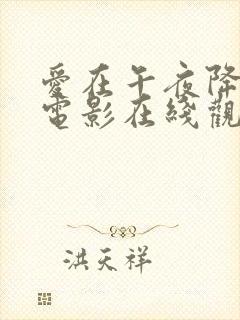 愛在午夜降
電影在綫觀
洪天祥